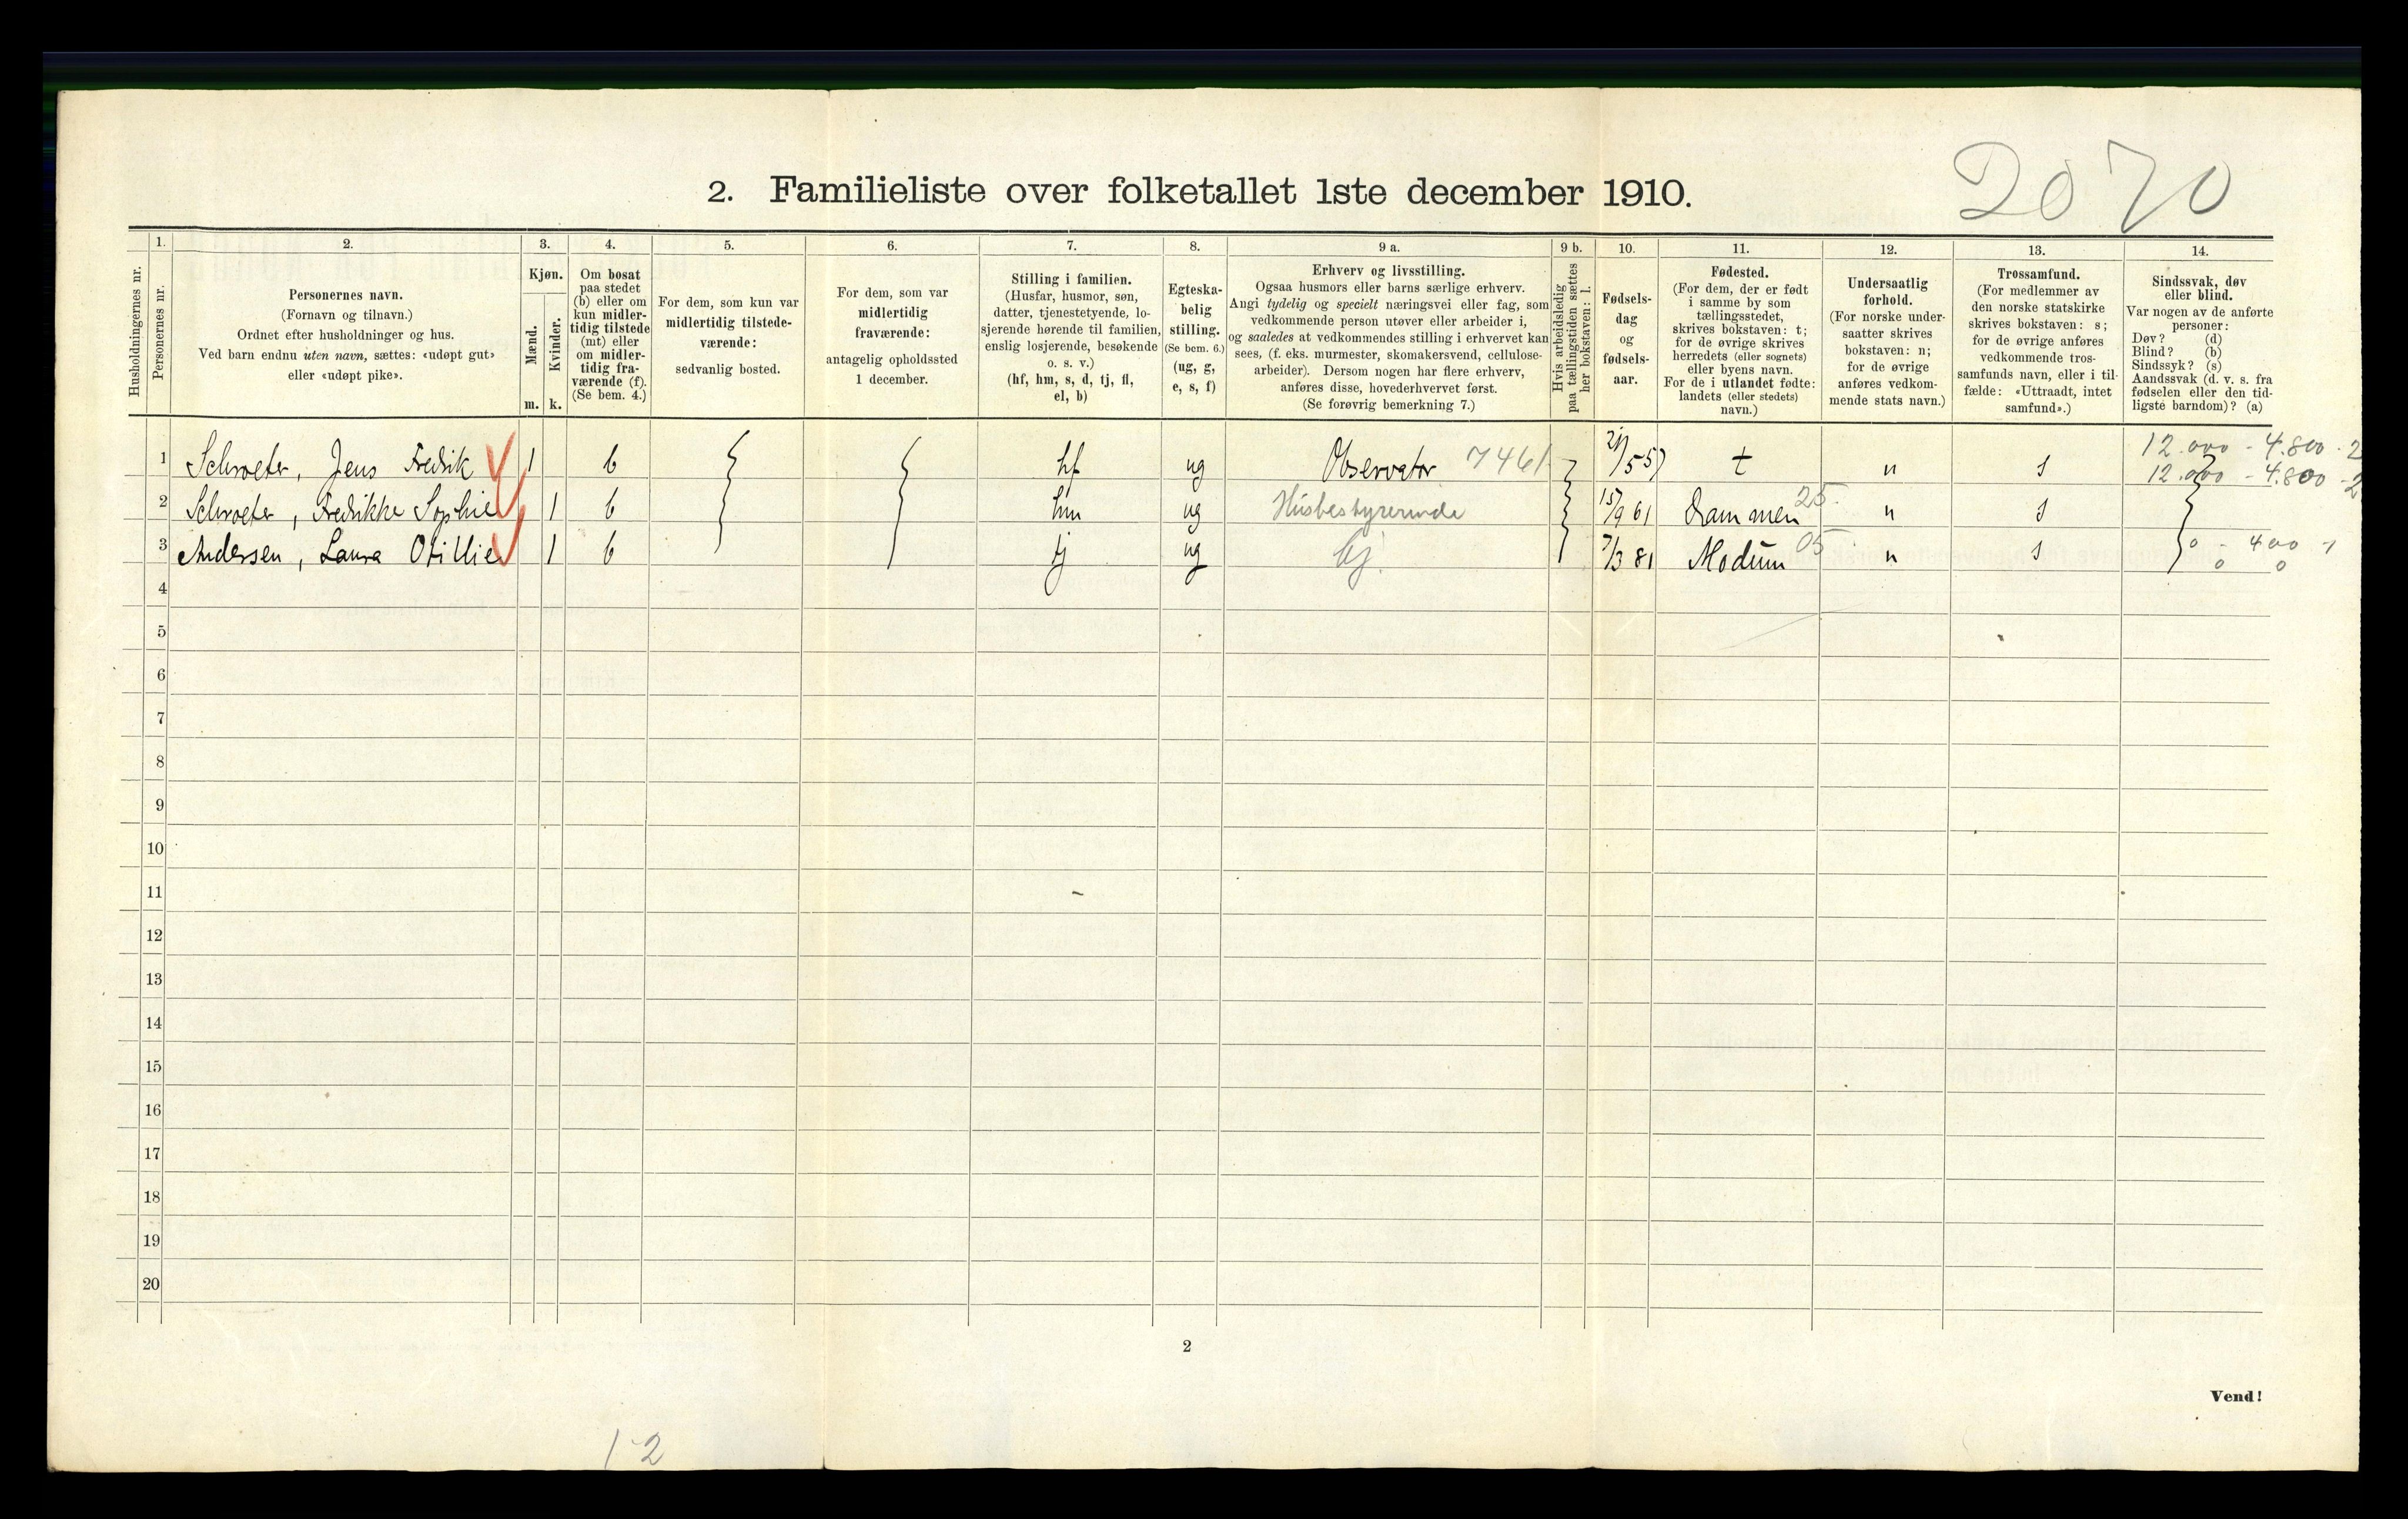 2070
2. Familieliste over folketallet 1ste december 1910.
Husholdningernes nr.
1.
Personernes nr.
2.
Personernes navn.
(Fornavn og tilnavn.)
Ordnet efter husholdninger og hus.
Ved barn endnu uten navn, sættes: «udøpt gut»
eller «udøpt pike».
3.
Kjøn.
Mænd.
Kvinder.
m.
k.
4.
Om bosat
paa stedet
(b) eller om
kun midler-
tidig tilstede
(mt) eller
om midler-
tidig fra-
værende (f).
(Se bem. 4.)
5.
For dem, som kun var
midlertidig tilstede-
værende:
sedvanlig bosted.
6.
For dem, som var
midlertidig
fraværende:
antagelig opholdssted
1 december.
7.
Stilling i familien.
(Husfar, husmor, søn,
datter, tjenestetyende, lo-
sjerende hørende til familien,
enslig losjerende, besøkende
o. s. v.)
(hf, hm, s, d, tj, fl,
el, b)
8.
Egteska-
belig
stilling.
(Se bem. 6.)
(ug, g,
e, s, f)
9 a.
Erhverv og livsstilling.
Ogsaa husmors eller barns særlige erhverv.
Angi tydelig og specielt næringsvei eller fag, som
vedkommende person utøver eller arbeider i,
og saaledes at vedkommendes stilling i erhvervet kan
sees, (f. eks. murmester, skomakersvend, cellulose-
arbeider). Dersom nogen har flere erhverv,
anføres disse, hovederhvervet først.
(Se forøvrig bemerkning 7.)
9 b.
Hvis arbeidsledig
paa tællingstiden sættes
her bokstaven: l.
10.
Fødsels-
dag
og
fødsels-
aar.
11.
Fødested.
(For dem, der er født
i samme by som
tællingsstedet,
skrives bokstaven: t;
for de øvrige skrives
herredets (eller sognets)
eller byens navn.
For de i utlandet fødte:
landets (eller stedets)
navn.)
12.
Undersaatlig
forhold.
(For norske under-
saatter skrives
bokstaven: n;
for de øvrige
anføres vedkom-
mende stats navn.)
13.
Trossamfund.
(For medlemmer av
den norske statskirke
skrives bokstaven: s;
for de øvrige anføres
vedkommende tros-
samfunds navn, eller i til-
fælde: «Uttraadt, intet
samfund».)
14.
Sindssvak, døv
eller blind.
Var nogen av de anførte
personer:
Døv? (d)
Blind? (b)
Sindssyk? (s)
Aandssvak (d. v. s. fra
fødselen eller den tid-
ligste barndom)? (a)
1 Schroeter, Jens Fredrik 1 b hf ug Observator 7461 t n s 12.000 - 4.800 - 2
12.000 - 4.800 - 2
2 Schroeter, Fredrikke Sophie 1 b hm ug Husbestyrerinde 15/9 61 Drammen 25 n s
3 Andersen, Laura Otillie 1 b tj ug tj. 7/3 81 Modum 05 n s 0 - 400 - 1
0 0
4
5
6
7
8
9
10
11
12
13
14
15
16
17
18
19
20
2
Vend!
1-2